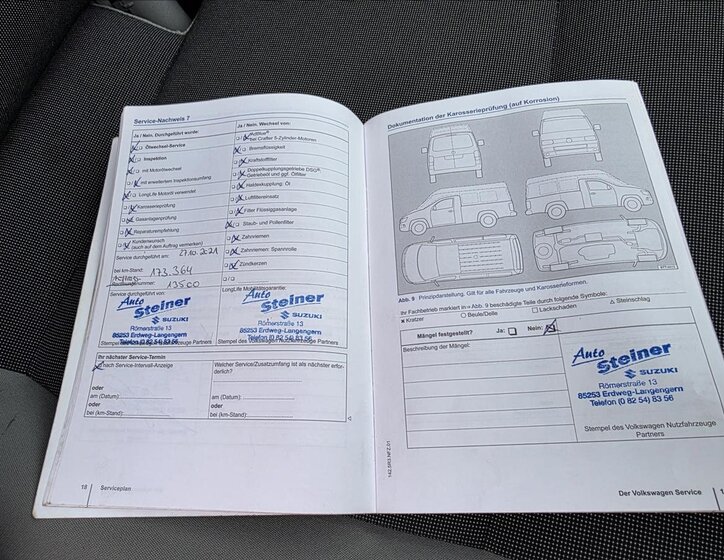 Service-Nachweis 7
Ja / Nein. Durchgeführt wurde:
Ölwechsel-Service
Inspektion
mit Motorölwechsel
mit erweitertem Inspektionsumfang
LongLife Motoröl verwendet
Karosserieprüfung
Gasanlagenprüfung
Reparaturempfehlung
Kundenwunsch
(auch auf dem Auftrag vermerken)
Service durchgeführt am: 27.10.2021
bei km-Stand: 173.364
13500
Service durchgeführt von:
Auto Steiner
SUZUKI
Römerstraße 13
85253 Erdweg-Langengern
Telefon (0 82 54) 83 56
Ja / Nein. Wechsel von:
AdBlue®
bei Crafter 5-Zylinder-Motoren
Bremsflüssigkeit
Kraftstofffilter
Doppelkupplungsgetriebe DSG®:
Getriebeöl und ggf. Ölfilter
Haldexkupplung: Öl
Luftfiltereinsatz
Filter Flüssiggasanlage
Staub- und Pollenfilter
Zahnriemen
Zahnriemen: Spannrolle
Zündkerzen
LongLife Mobilitätsgarantie:
Auto Steiner
SUZUKI
Römerstraße 13
85253 Erdweg-Langengern
Telefon (0 82 54) 83 56
Stempel des Volkswagen Nutzfahrzeuge Partners
Ihr nächster Service-Termin
nach Service-Intervall-Anzeige
oder
am (Datum):
oder
bei (km-Stand):
Welcher Service/Zusatzumfang ist als nächster erforderlich?
am (Datum):
bei (km-Stand):
18 Serviceplan
Dokumentation der Karosserieprüfung (auf Korrosion)
Abb. 9 Prinzipdarstellung. Gilt für alle Fahrzeuge und Karosserieformen.
Ihr Fachbetrieb markiert in ⇒ Abb. 9 beschädigte Teile durch folgende Symbole:
× Kratzer ○ Beule/Delle □ Lackschaden △ Steinschlag
Mängel festgestellt? Ja: Nein:
Beschreibung der Mängel:
Auto Steiner
SUZUKI
Römerstraße 13
85253 Erdweg-Langengern
Telefon (0 82 54) 83 56
Stempel des Volkswagen Nutzfahrzeuge
Partners
Der Volkswagen Service